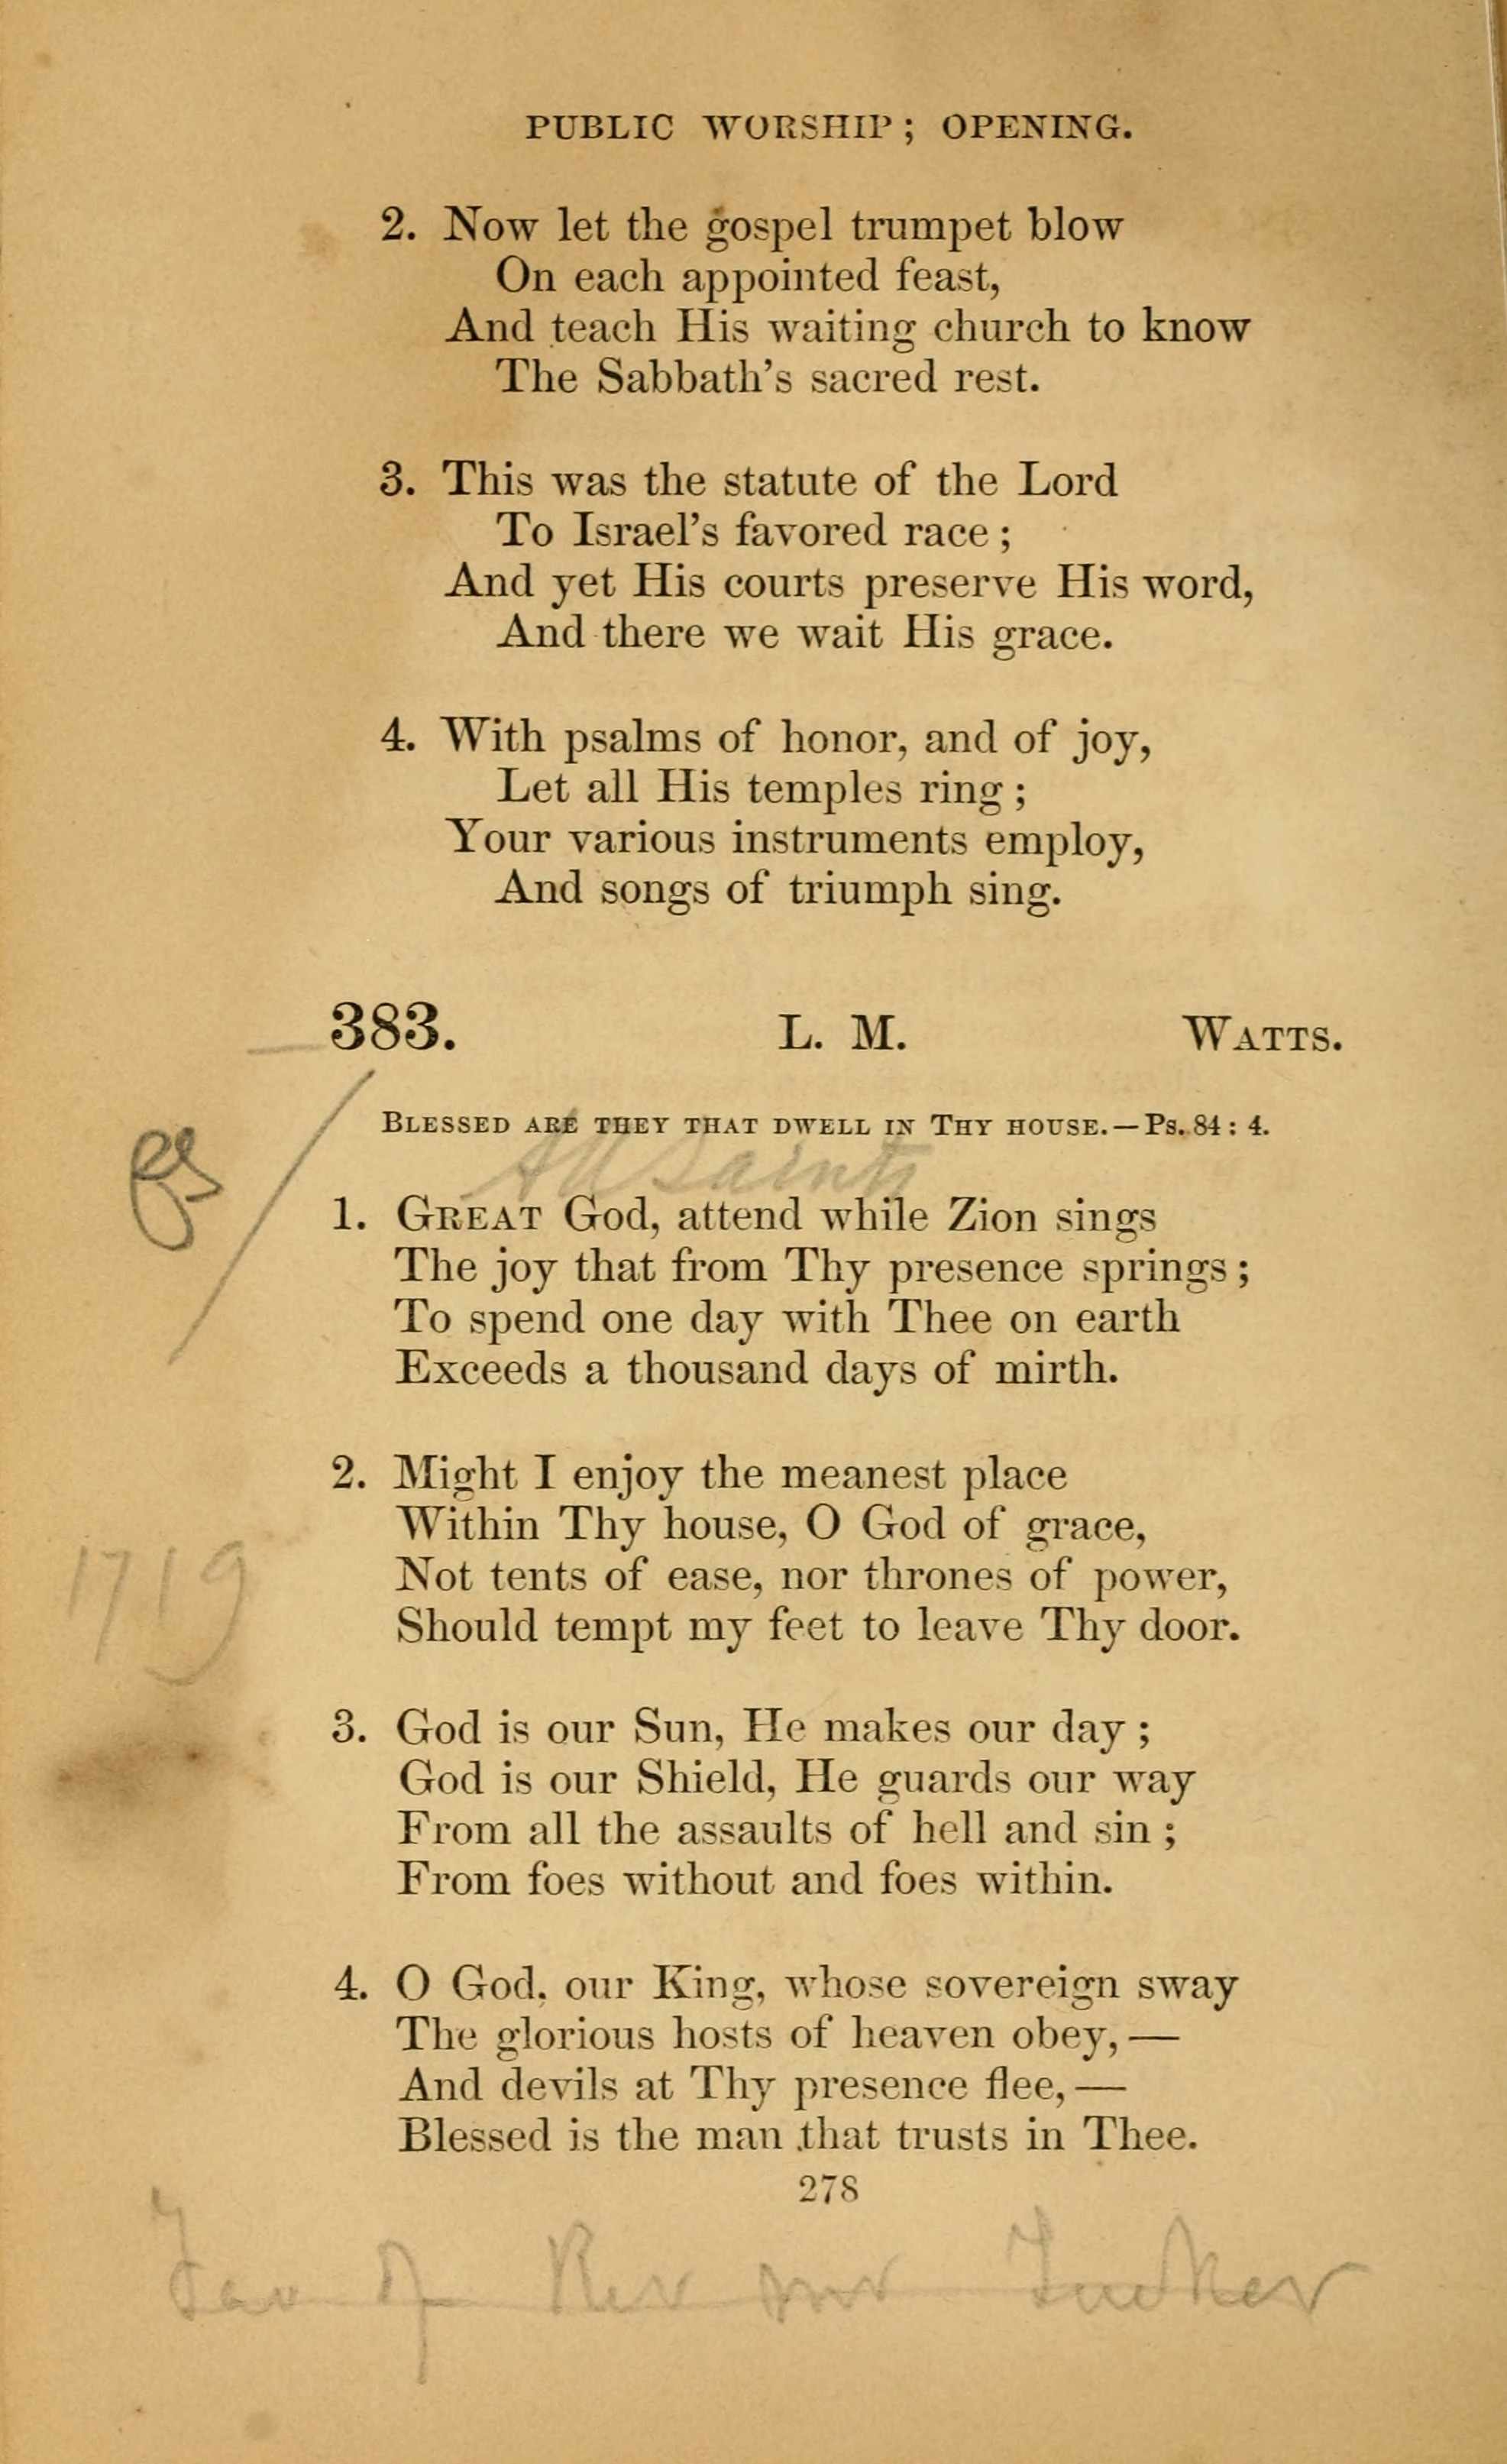 PUBLIC WORSHIP; OPENING.
2. Now let the gospel trumpet blow
On each appointed feast,
And teach His waiting church to know
The Sabbath's sacred rest.
3. This was the statute of the Lord
To Israel's favored race;
And yet His courts preserve His word,
And there we wait His grace.
4. With psalms of honor, and of joy,
Let all His temples ring;
Your various instruments employ,
And songs of triumph sing.
383. L. M. WATTS.
BLESSED ARE THEY THAT DWELL IN THY HOUSE.—Ps. 84: 4.
All Saints
1. GREAT God, attend while Zion sings
The joy that from Thy presence springs;
To spend one day with Thee on earth
Exceeds a thousand days of mirth.
2. Might I enjoy the meanest place
Within Thy house, O God of grace,
Not tents of ease, nor thrones of power,
Should tempt my feet to leave Thy door.
1719
3. God is our Sun, He makes our day;
God is our Shield, He guards our way
From all the assaults of hell and sin;
From foes without and foes within.
4. O God, our King, whose sovereign sway
The glorious hosts of heaven obey,—
And devils at Thy presence flee,—
Blessed is the man that trusts in Thee.
278
Fav of Rev Mr Tucker